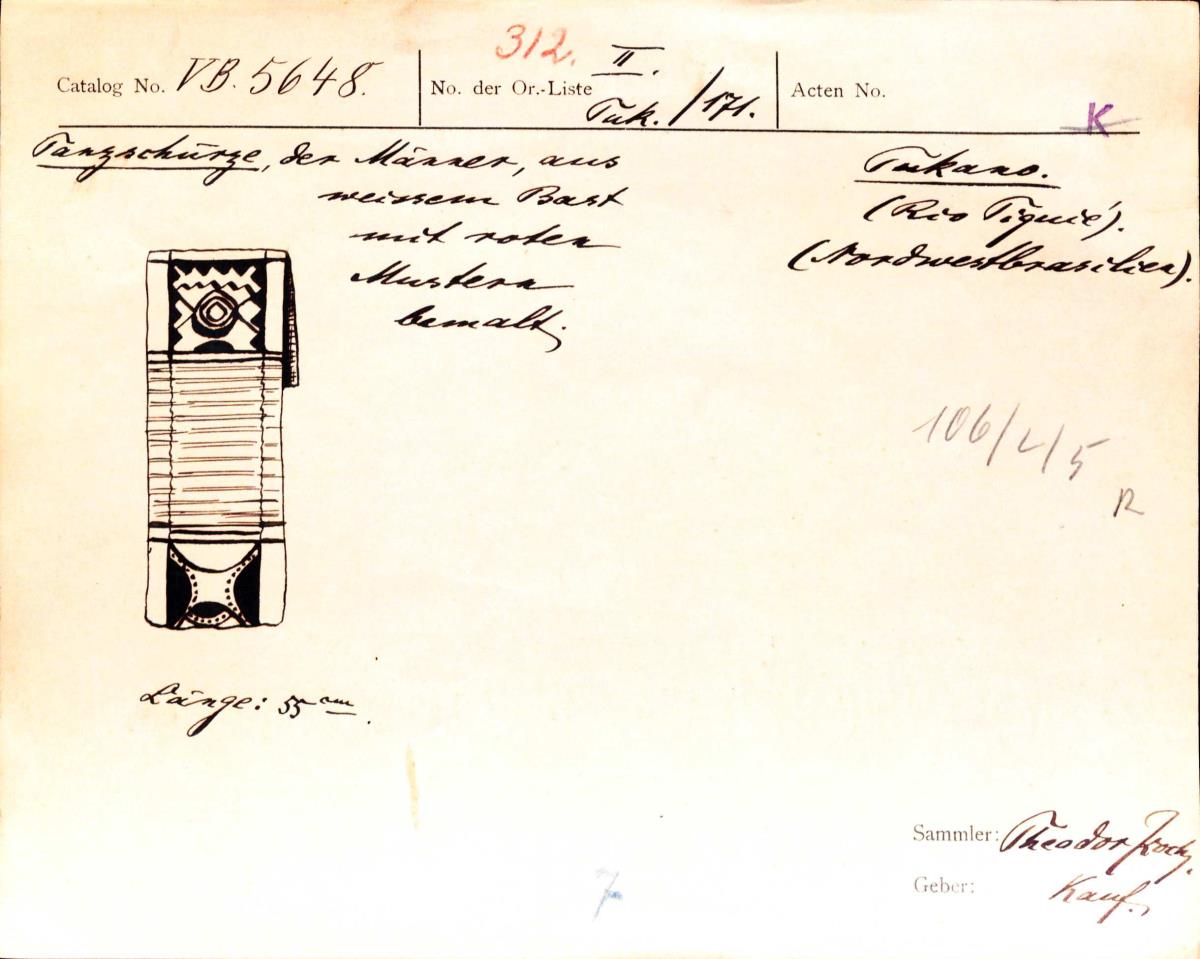 312.
Catalog No. VB. 5648.
No. der Or.-Liste II.
Tuk. / 171.
Acten No.
K
Tanzschürze, der Männer, aus
weissem Bast
mit roten
Mustern
bemalt.
Tukano.
(Rio Tiquié).
(Nordwestbrasilien).
106/2/5
R
Länge: 55 cm.
Sammler: Theodor Koch.
Geber: Kauf.
7